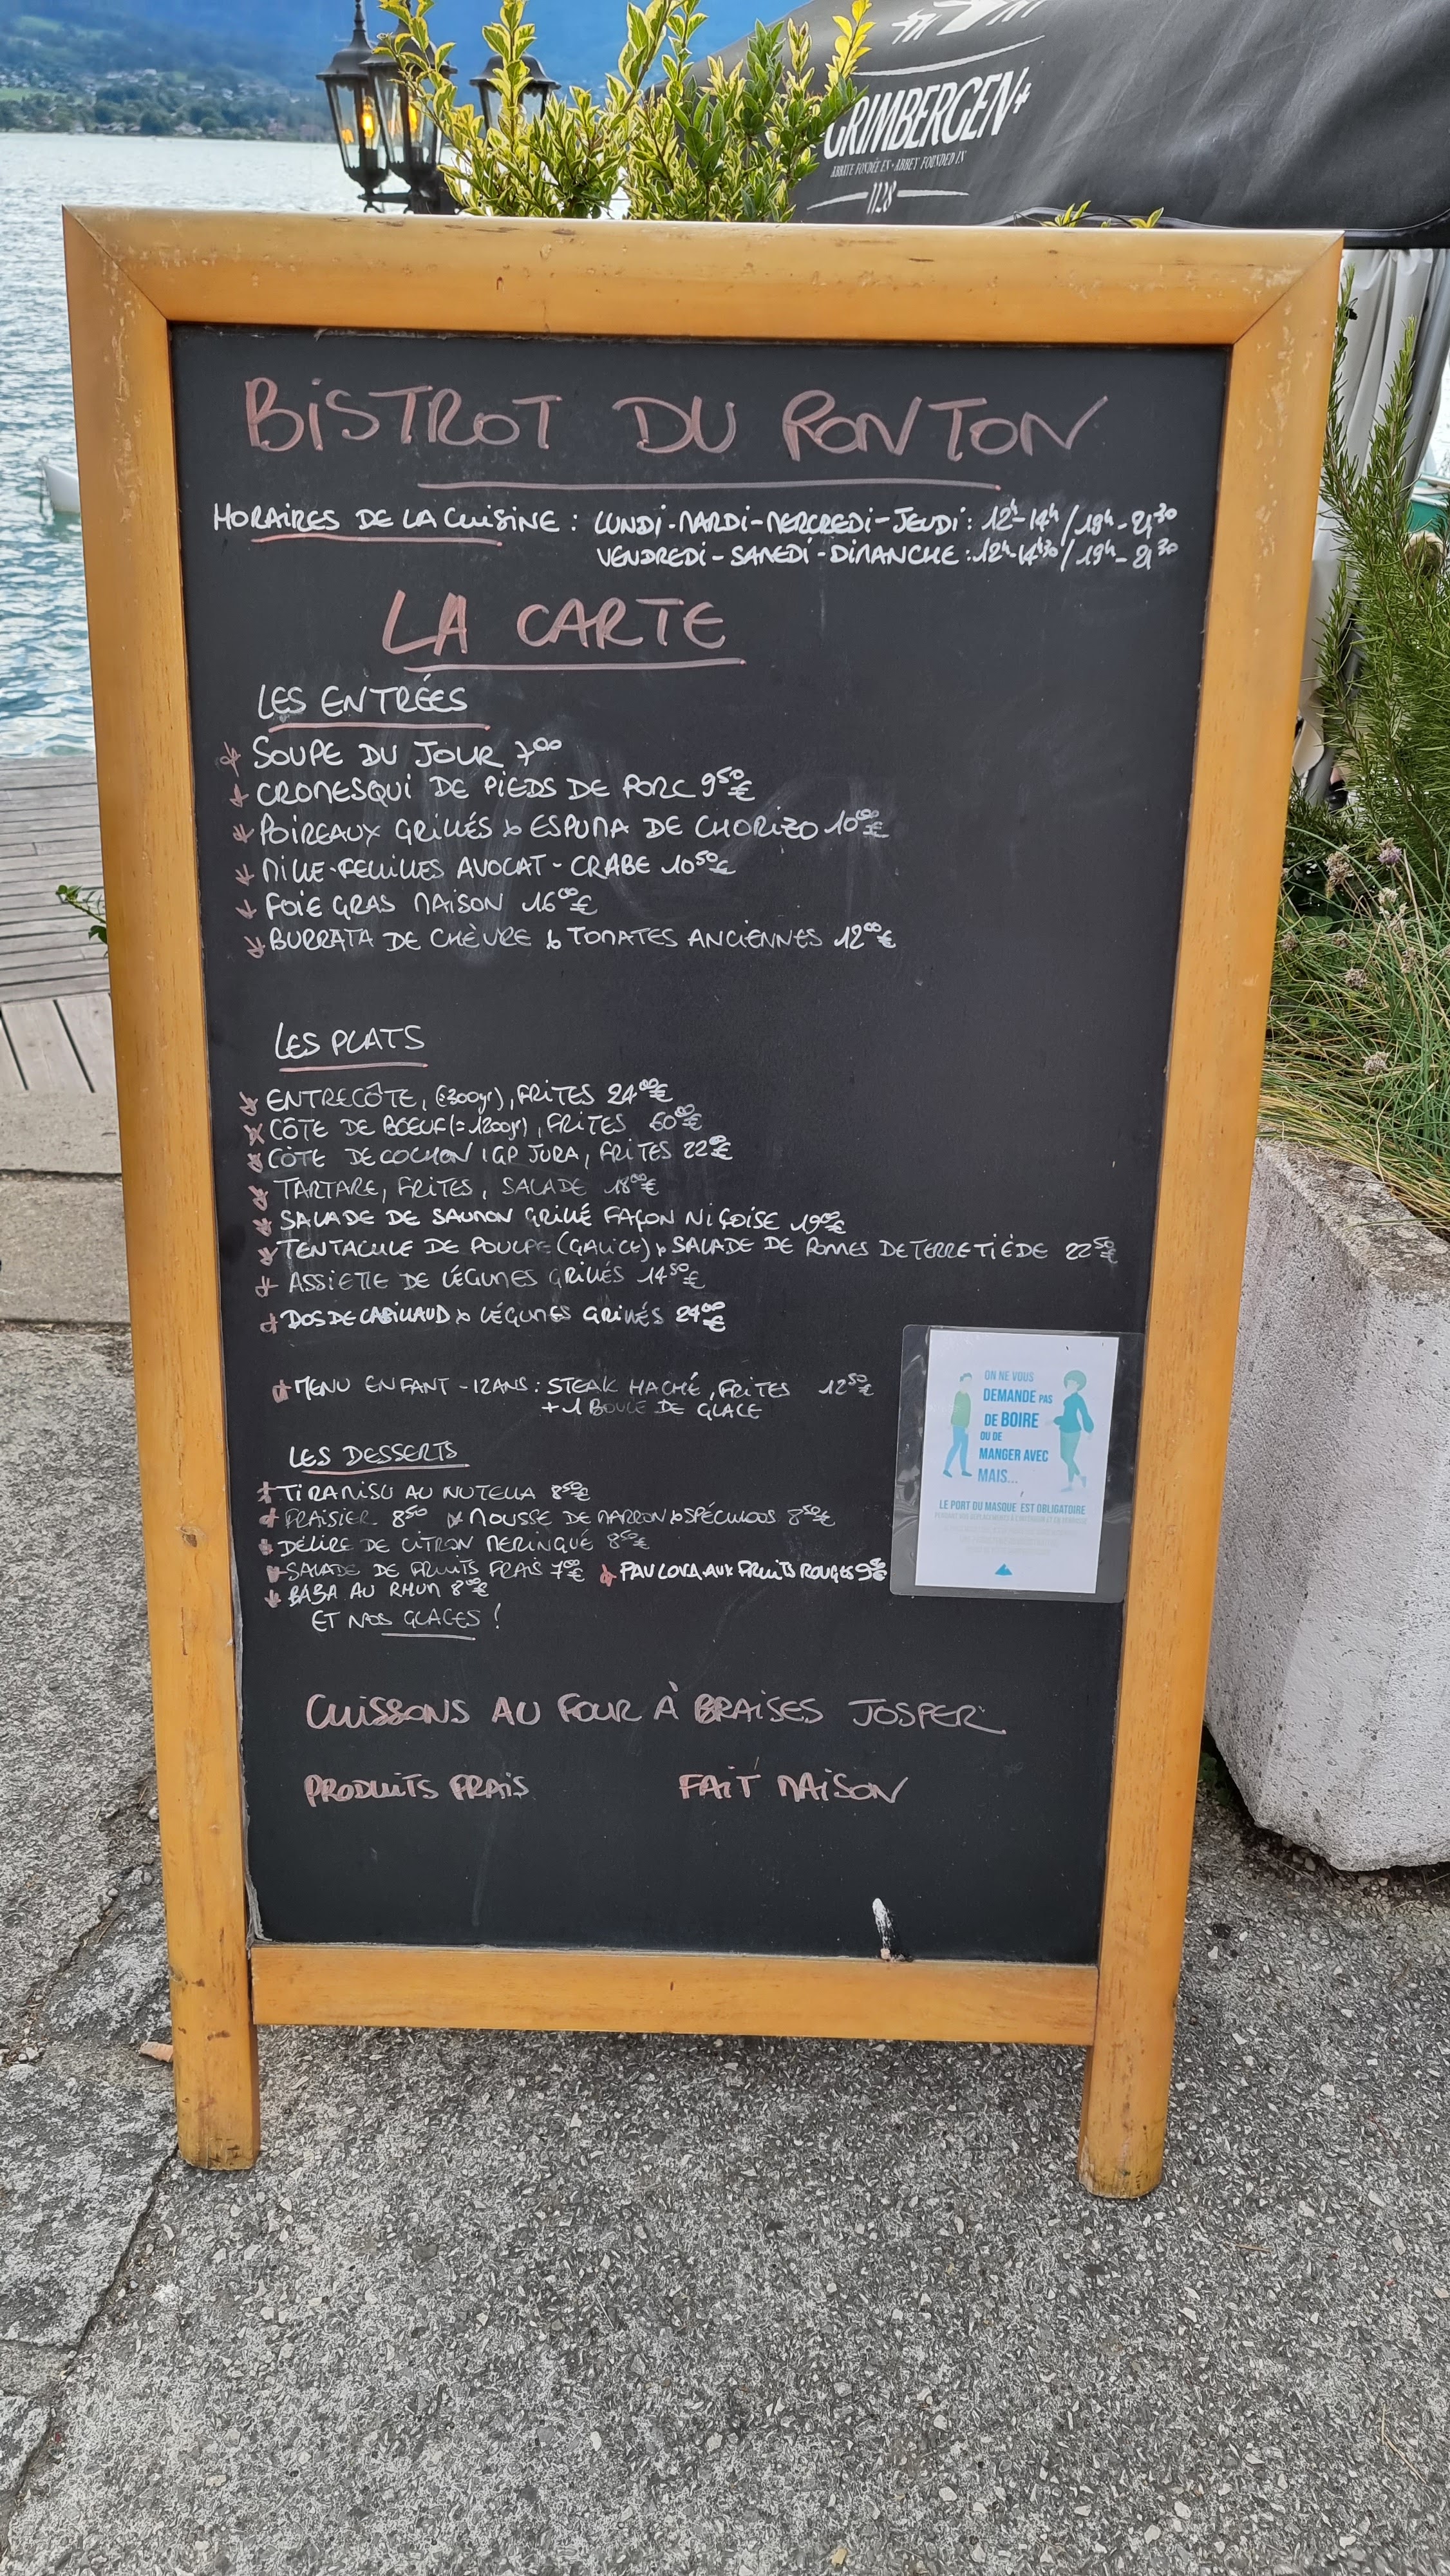 GRIMBERGEN
ABBAYE FONDÉE EN · ABBEY FOUNDED IN
1128
BISTROT DU PONTON
HORAIRES DE LA CUISINE : LUNDI-MARDI-MERCREDI-JEUDI : 12h-14h / 19h-21h30
VENDREDI-SAMEDI-DIMANCHE : 12h-14h30 / 19h-21h30
LA CARTE
LES ENTRÉES
SOUPE DU JOUR 7,00
CROMESQUI DE PIEDS DE PORC 9,50€
POIREAUX GRILLÉS & ESPUMA DE CHORIZO 10,00€
MILLE-FEUILLES AVOCAT-CRABE 10,50€
FOIE GRAS MAISON 16,00€
BURRATA DE CHÈVRE & TOMATES ANCIENNES 12,00€
LES PLATS
ENTRECÔTE, (≈300gr), FRITES 24,00€
CÔTE DE BŒUF (≈1200gr), FRITES 60,00€
CÔTE DE COCHON IGP JURA, FRITES 22,00€
TARTARE, FRITES, SALADE 18,00€
SALADE DE SAUMON GRILLÉ FAÇON NIÇOISE 19,00€
TENTACULE DE POULPE (GALICE) & SALADE DE POMMES DE TERRE TIÈDE 22,50€
ASSIETTE DE LÉGUMES GRILLÉS 14,50€
DOS DE CABILLAUD & LÉGUMES GRILLÉS 24,00€
MENU ENFANT -12ANS : STEAK HACHÉ, FRITES 12,50€
+ 1 BOULE DE GLACE
LES DESSERTS
TIRAMISU AU NUTELLA 8,50€
FRAISIER 8,50 MOUSSE DE MARRON & SPÉCULOOS 8,50€
DÉLIRE DE CITRON MERINGUÉ 8,50€
SALADE DE FRUITS FRAIS 7,00€ PAVLOVA AUX FRUITS ROUGES 9€
BABA AU RHUM 8€
ET NOS GLACES !
ON NE VOUS
DEMANDE PAS
DE BOIRE
OU DE
MANGER AVEC
MAIS...
LE PORT DU MASQUE EST OBLIGATOIRE
CUISSONS AU FOUR À BRAISES JOSPER
PRODUITS FRAIS FAIT MAISON